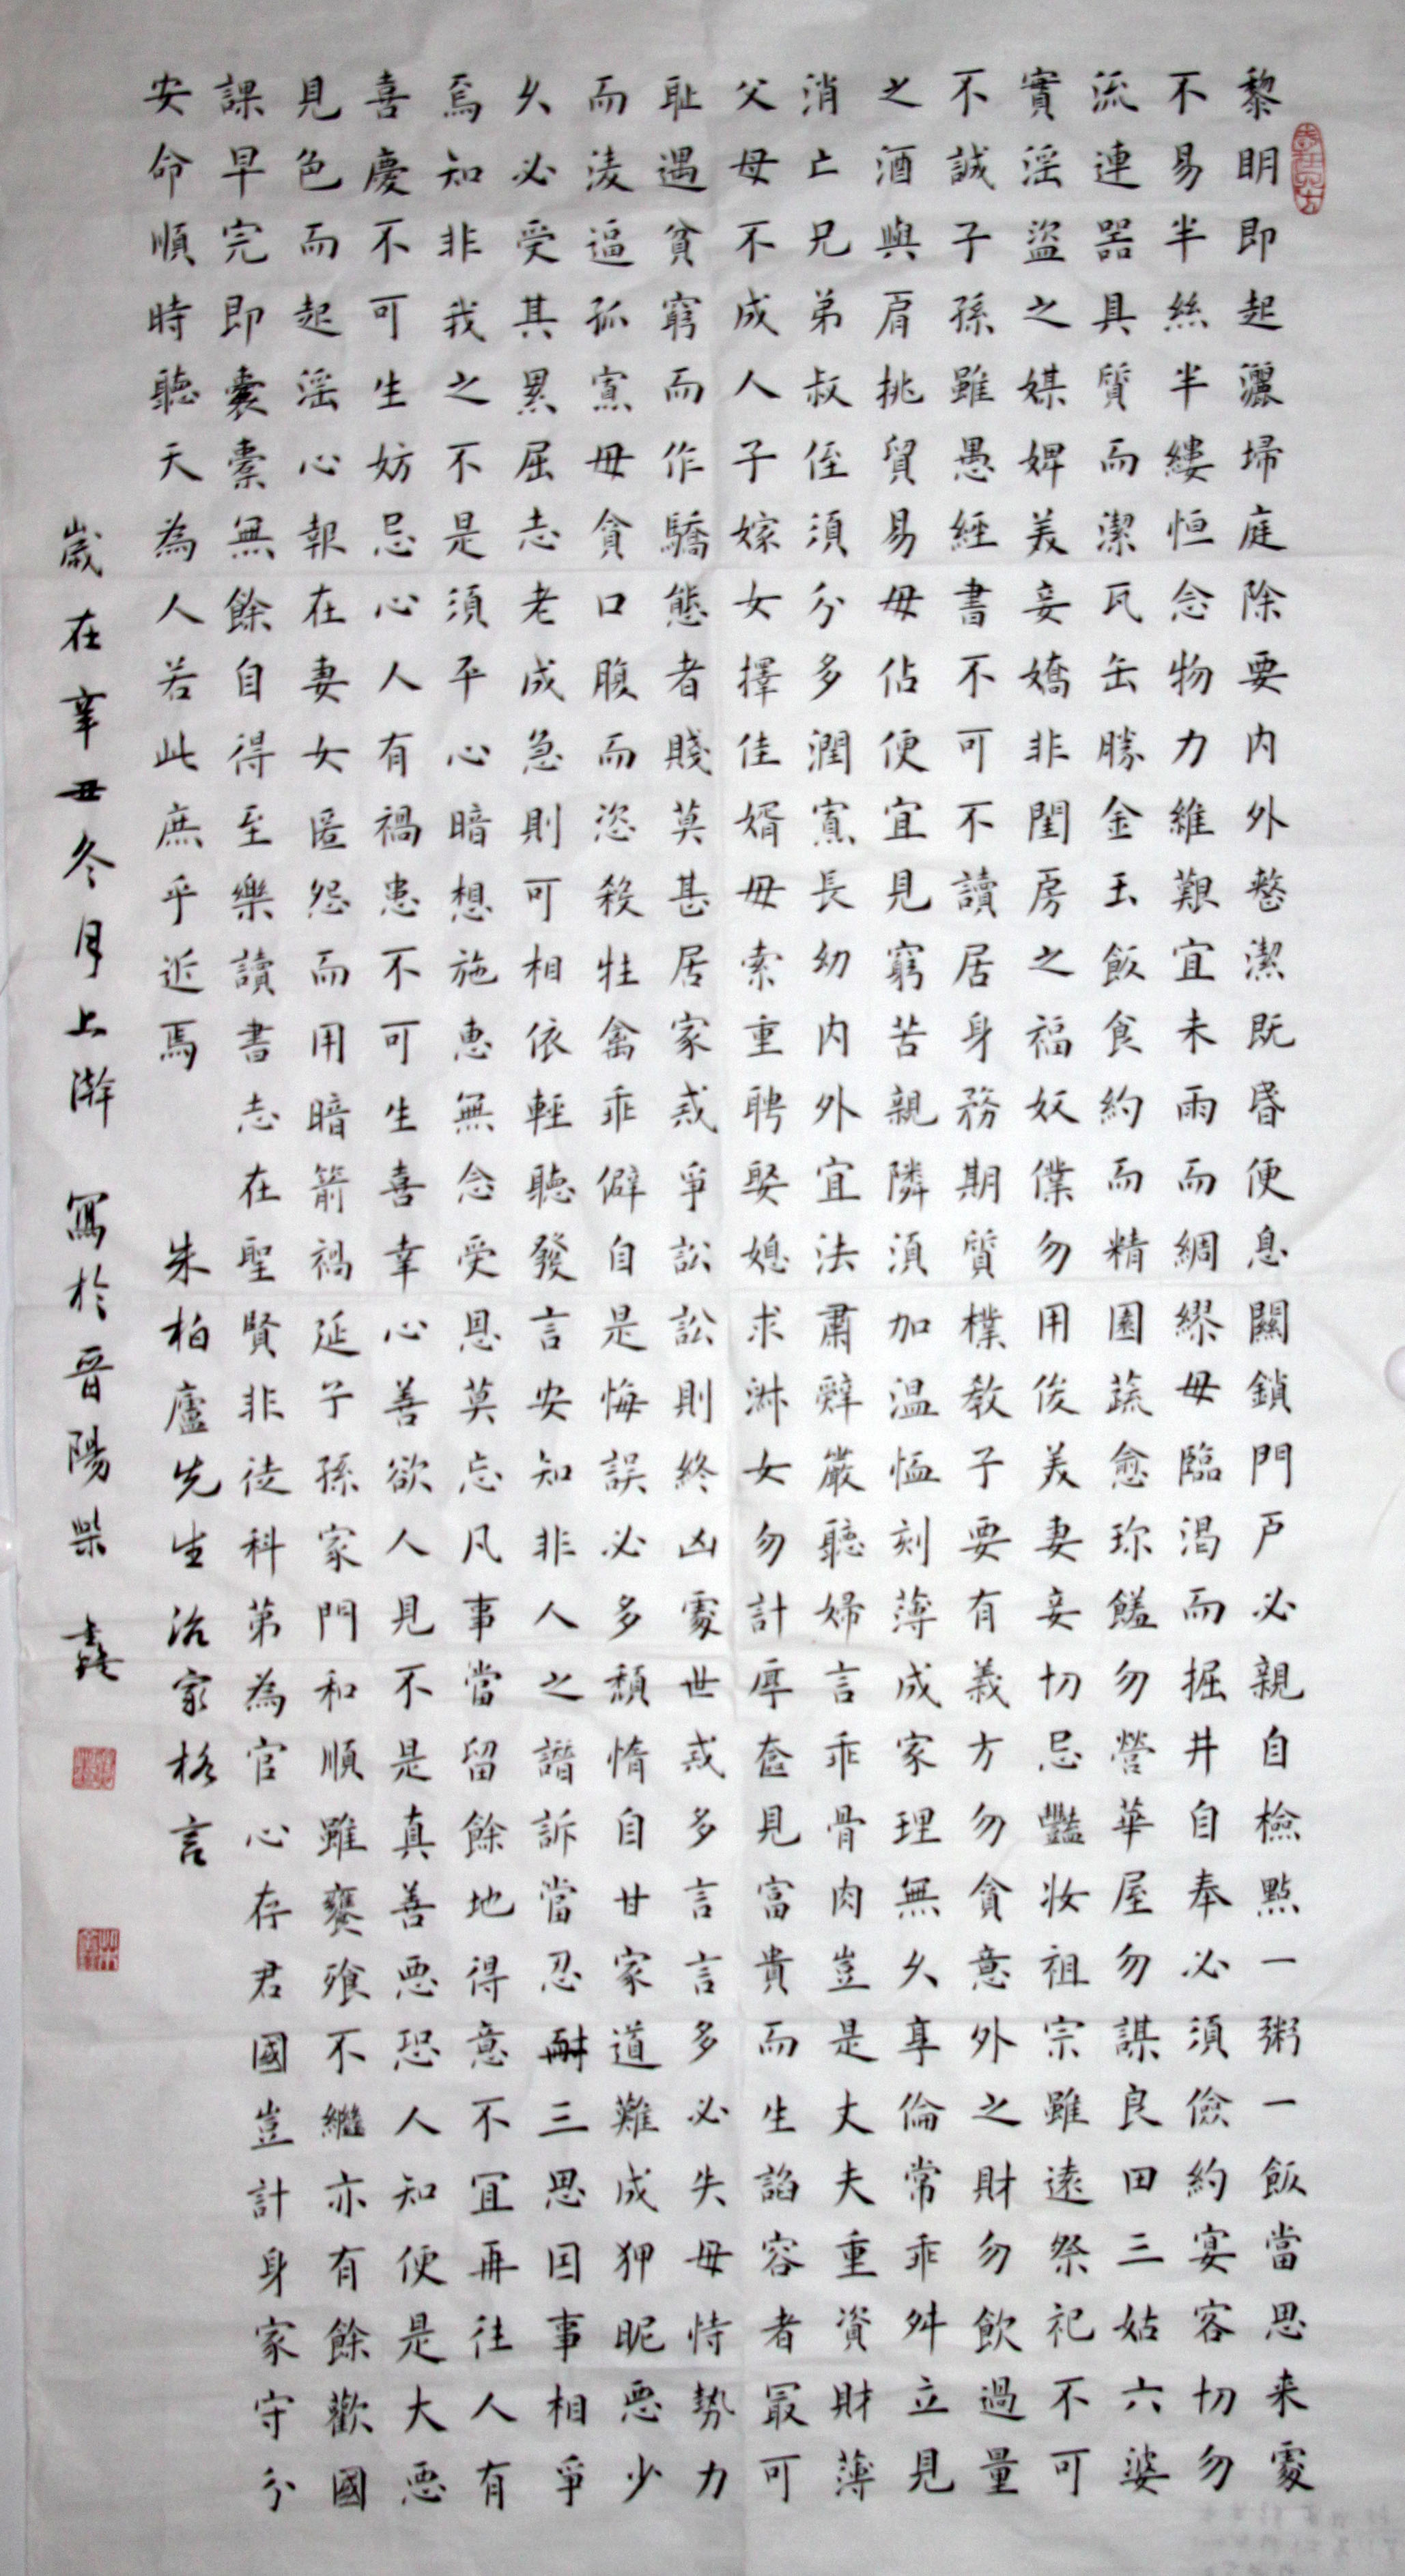 黎明即起灑埽庭除要内外整潔既昏便息關鎖門戶必親自檢點一粥一飯當思来處
不易半絲半縷恒念物力維艱宜未雨而綢繆毋臨渴而掘井自奉必須儉約宴客切勿
流連器具質而潔瓦缶勝金玉飯食約而精園蔬愈珍饈勿營華屋勿謀良田三姑六婆
實淫盜之媒婢美妾嬌非閨房之福奴僕勿用俊美妻妾切忌豔妝祖宗雖遠祭祀不可
不誠子孫雖愚經書不可不讀居身務期質樸教子要有義方勿貪意外之財勿飲過量
之酒與肩挑貿易毋佔便宜見窮苦親隣須加温恤刻薄成家理無久享倫常乖舛立見
消亡兄弟叔侄須分多潤寡長幼内外宜法肅辭嚴聽婦言乖骨肉豈是丈夫重資財薄
父母不成人子嫁女擇佳婿毋索重聘娶媳求淑女勿計厚奩見富貴而生諂容者最可
耻遇貧窮而作驕態者賤莫甚居家戒爭訟訟則終凶處世戒多言言多必失毋恃勢力
而淩逼孤寡毋貪口腹而恣殺牲禽乖僻自是悔誤必多頹惰自甘家道難成狎昵惡少
久必受其累屈志老成急則可相依輕聽發言安知非人之譖訴當忍耐三思因事相爭
焉知非我之不是須平心暗想施惠無念受恩莫忘凡事當留餘地得意不宜再往人有
喜慶不可生妒忌心人有禍患不可生喜幸心善欲人見不是真善惡恐人知便是大惡
見色而起淫心報在妻女匿怨而用暗箭禍延子孫家門和順雖饔飧不繼亦有餘歡國
課早完即囊橐無餘自得至樂讀書志在聖賢非徒科第為官心存君國豈計身家守分
安命順時聽天為人若此庶乎近焉 朱柏廬先生治家格言
歲在辛丑冬月上澣 寫於晉陽柴 鑫